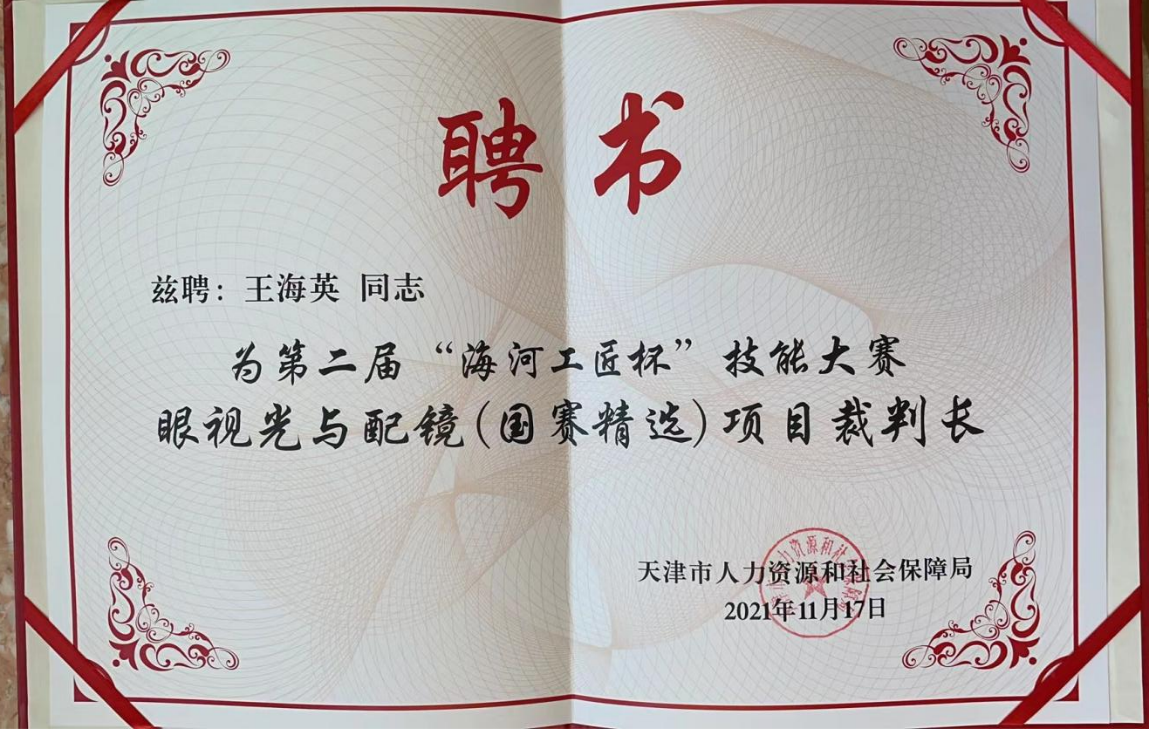 聘书
兹聘：王海英 同志
为第二届“海河工匠杯”技能大赛
眼视光与配镜(国赛精选)项目裁判长
天津市人力资源和社会保障局
2021年11月17日